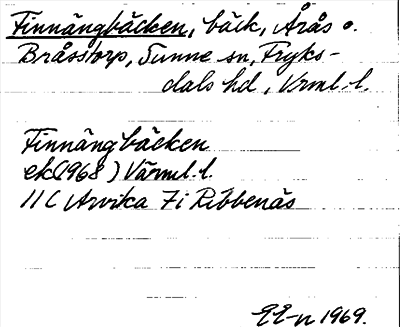 Finnängbäcken, bäck, Årås o.
Bråsstorp, Sunne sn, Fryks-
dals hd, Vrml. l.
Finnängbäcken
ek(1968) Värml. l.
11 C Arvika 7i Ribbenäs
1969.